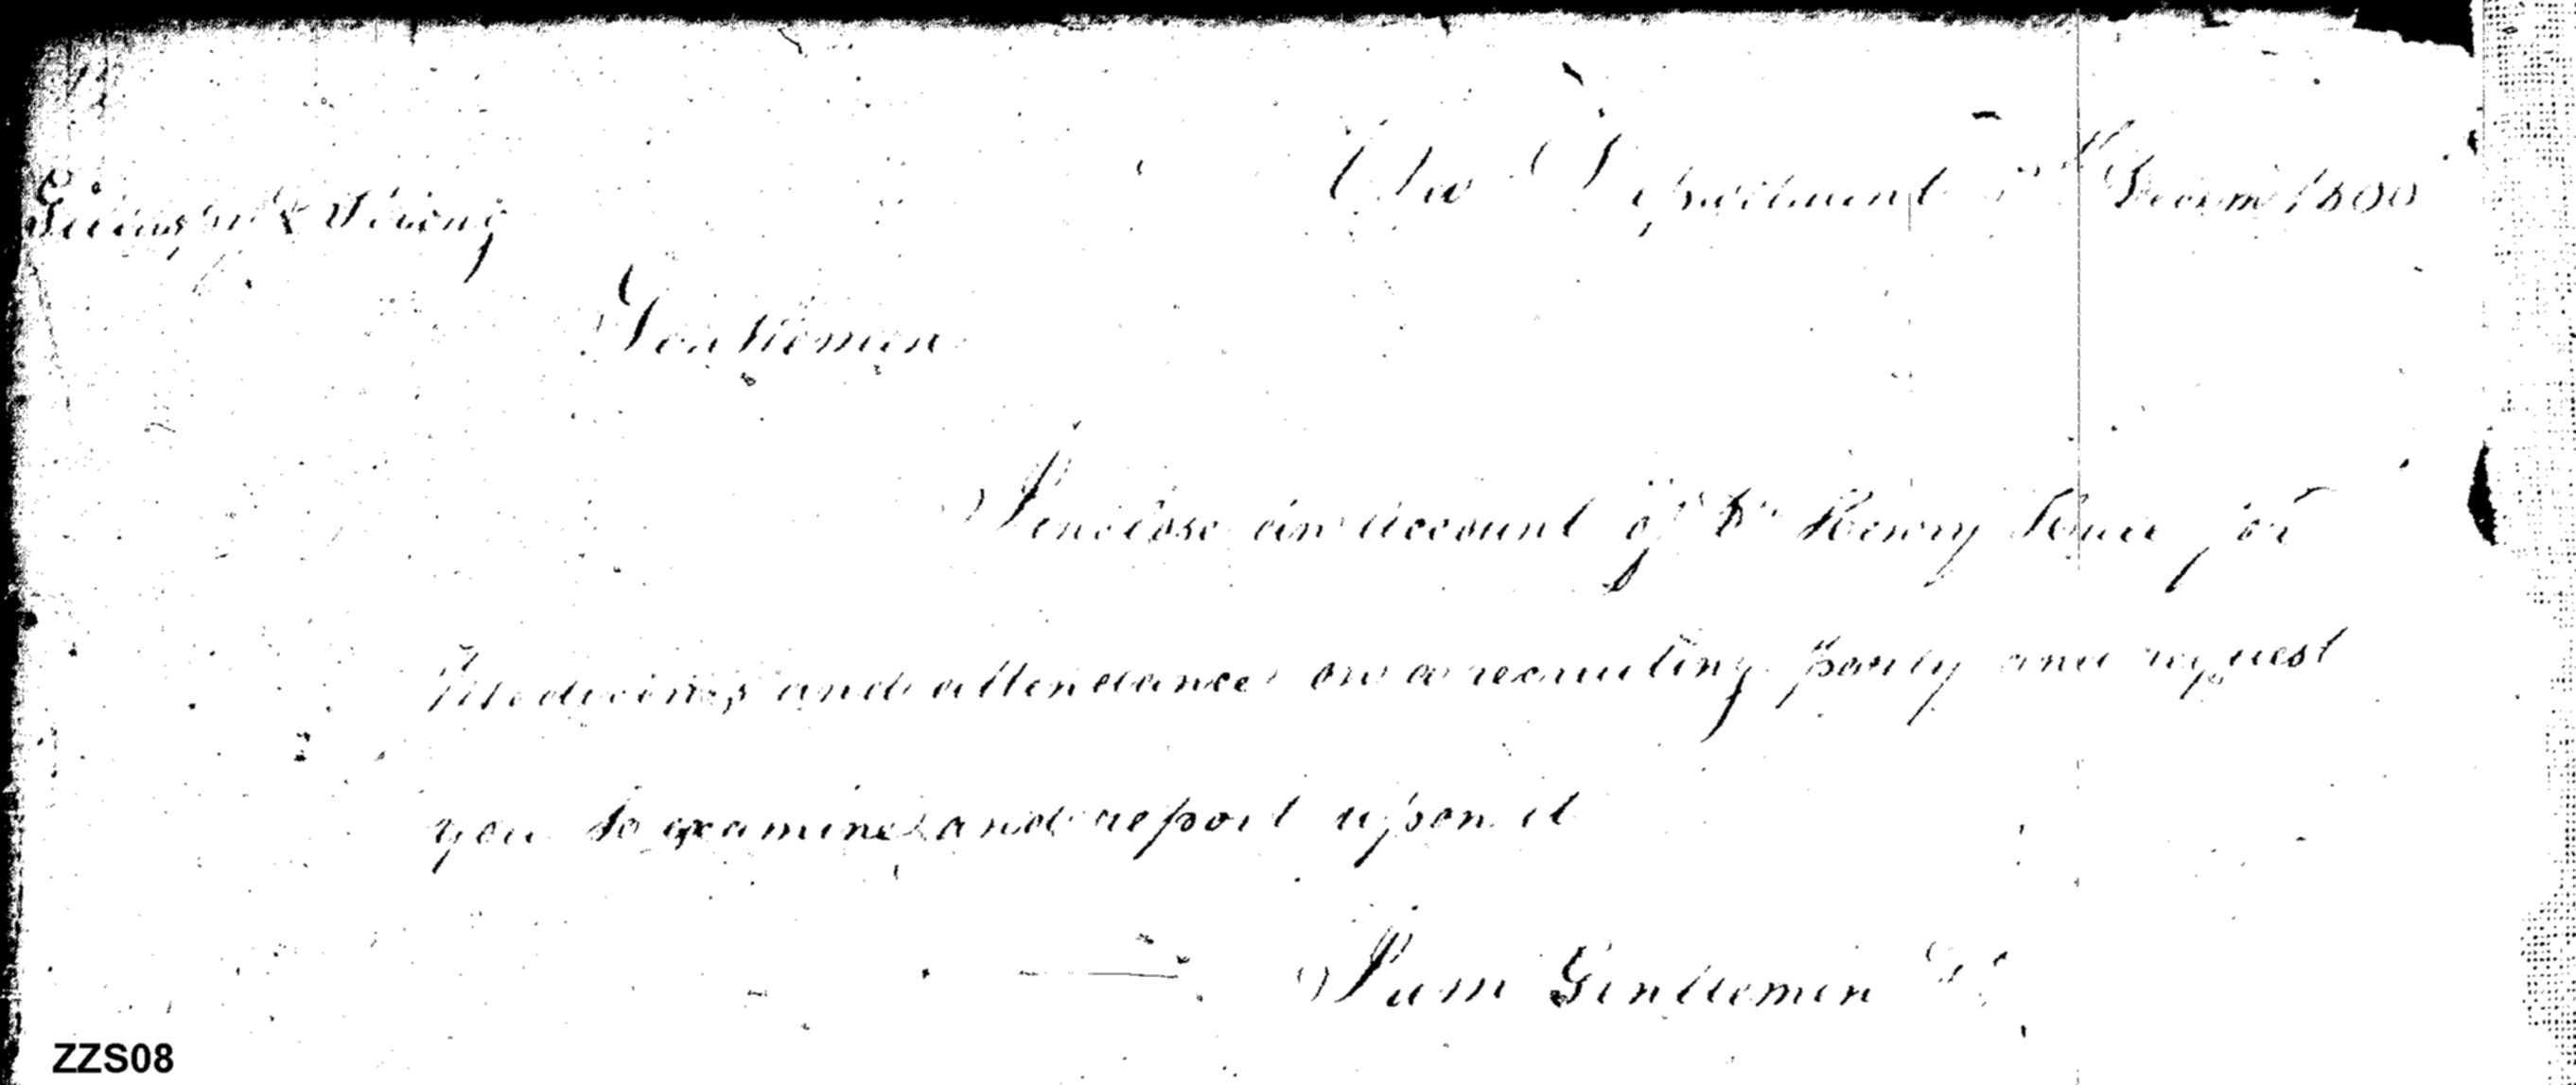 War Department 5th Decem 1800
& Strong
Gentlemen
I enclose an Account of Dr Henry for
Medicines and attendance on a recruiting party and request
you to examine and report upon it
I am Gentlemen
ZZS08